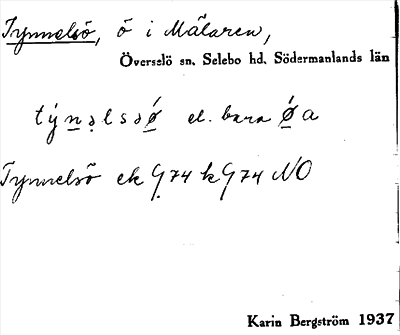 Tynnelsö, ö i Mälaren,
Överselö sn, Selebo hd, Södermanlands län
el. bara
Tynnelsö ek G74 kG74 NO
Karin Bergström 1937